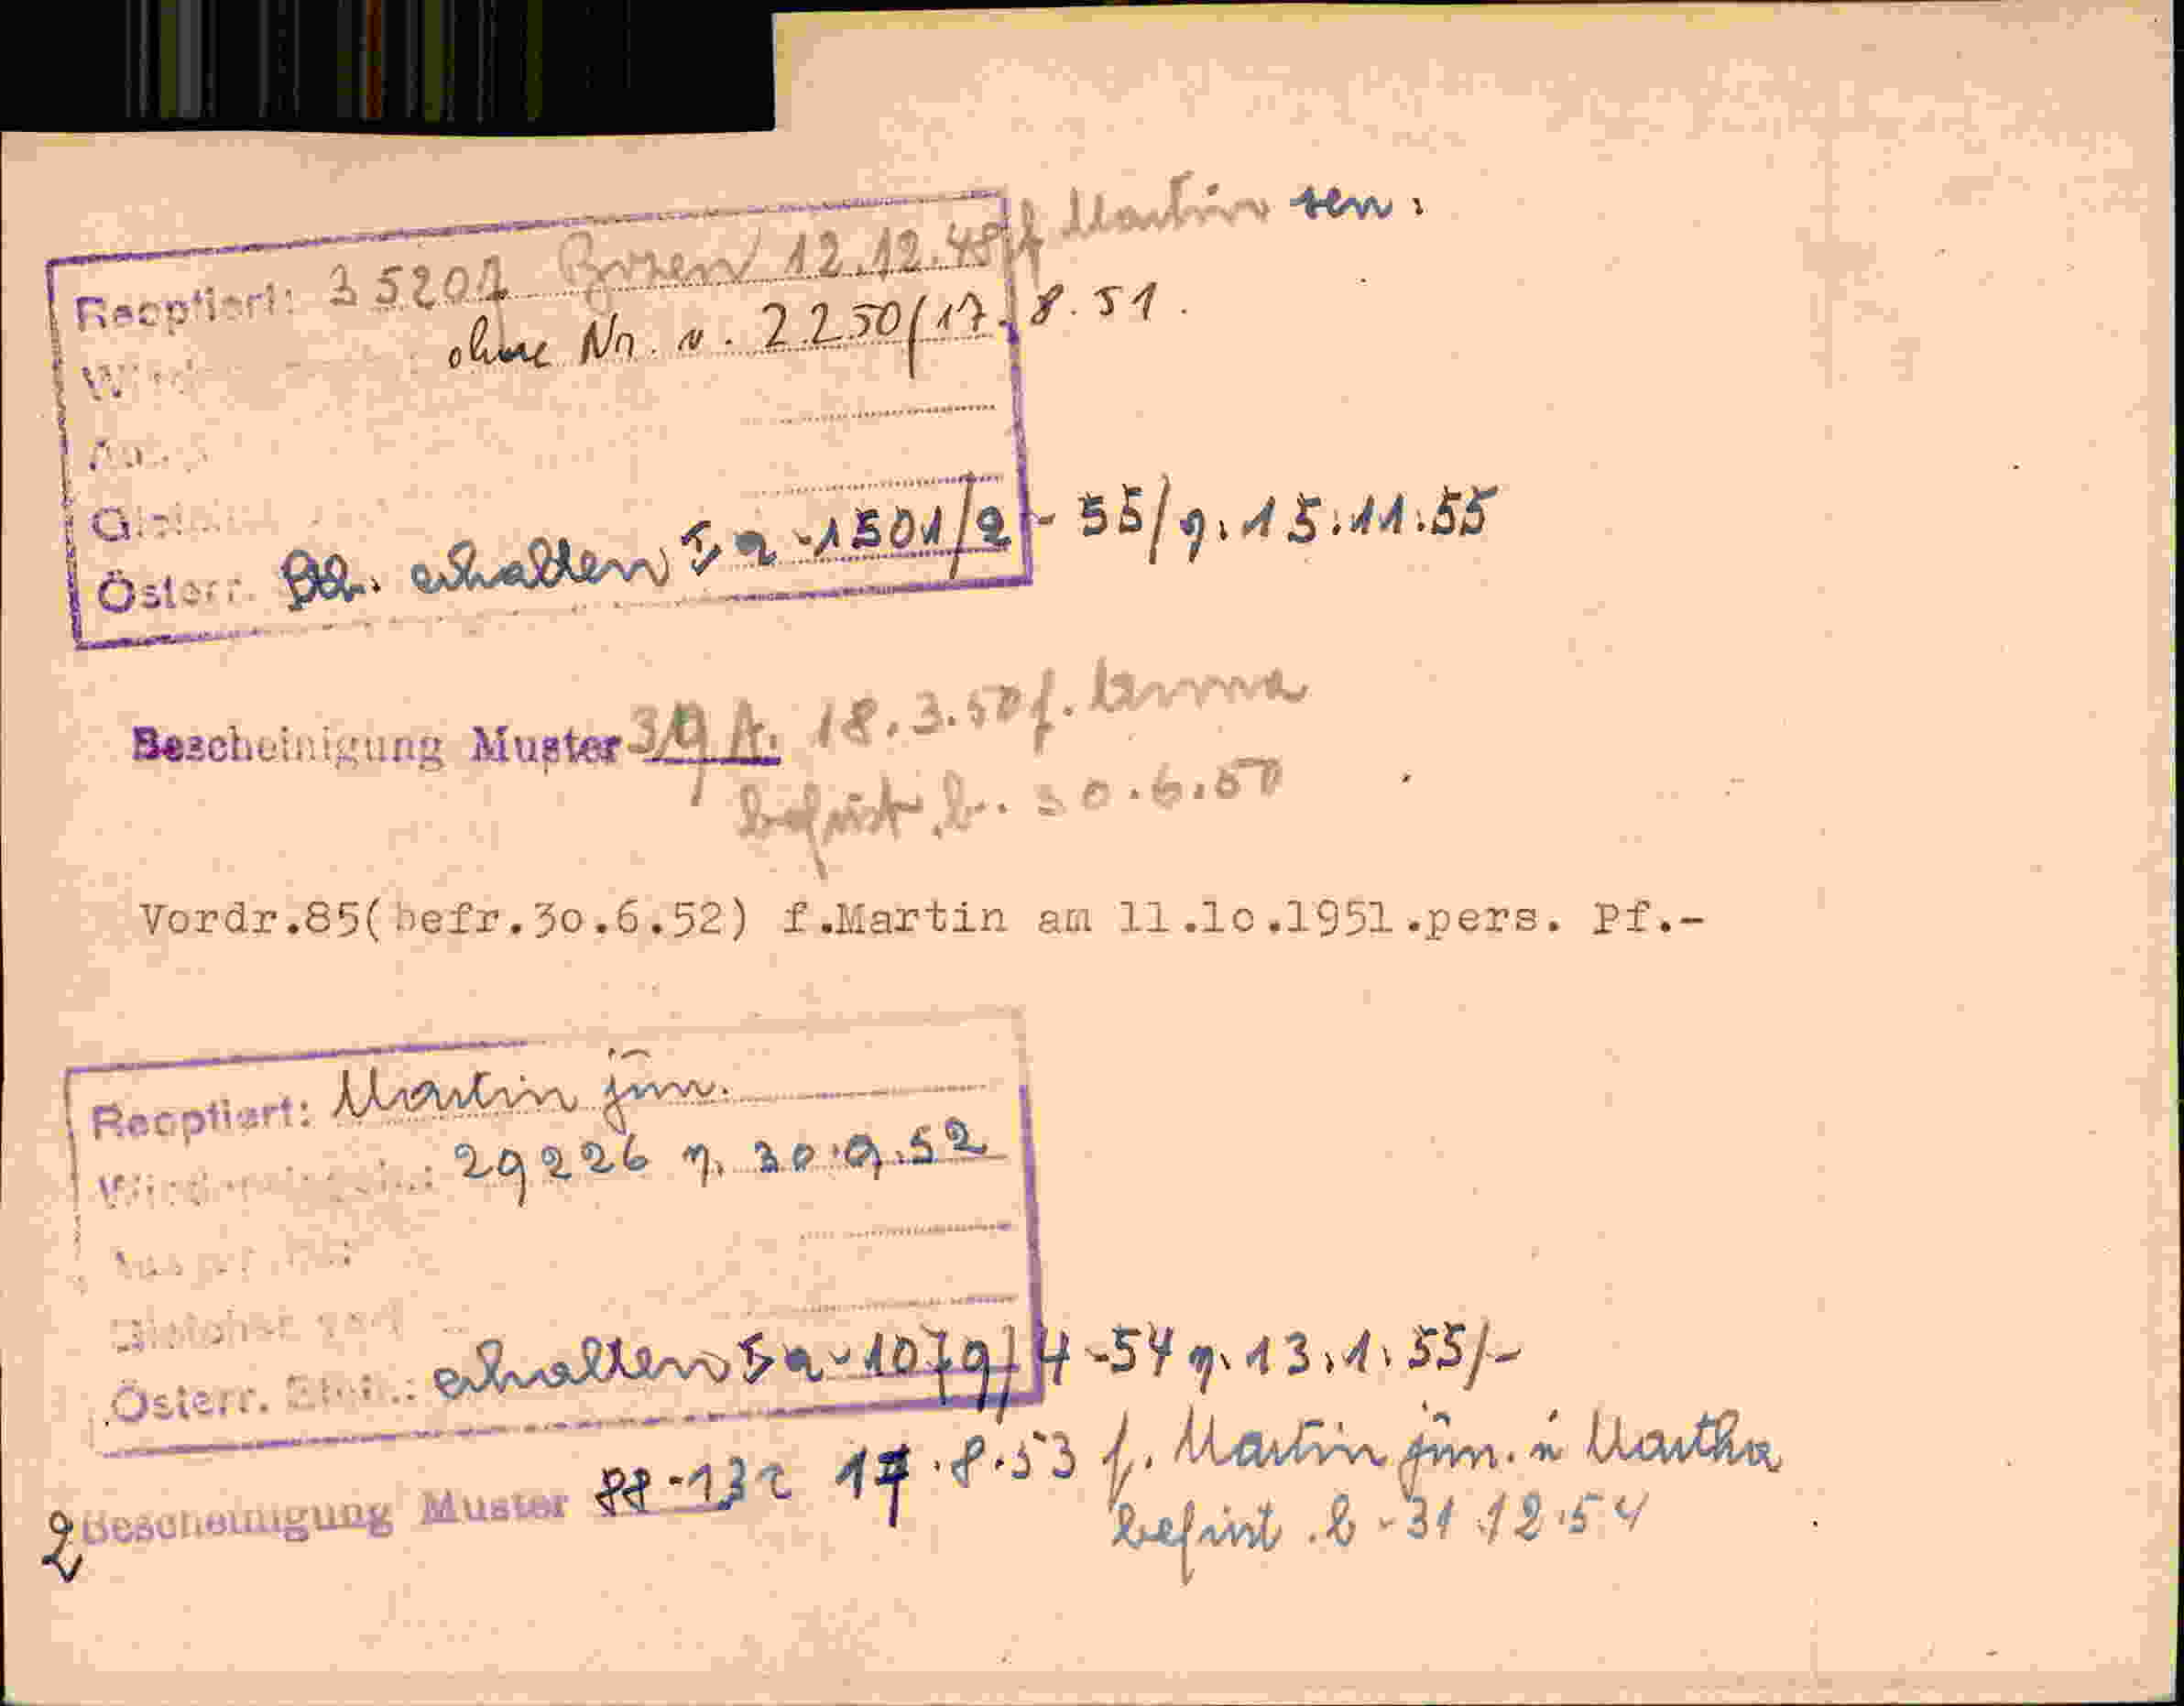 Reoptiert: 35201 Bozen 12.12.48 f Martin sen.
ohne Nr. v. 2250/17.8.51.
Österr. erhalten 5a-1501/2-55/v. 15.11.55
Bescheinigung Muster 3/9 A. 18.3.50 f.
befrist. b. 30.6.50
Vordr.85(befr.3o.6.52) f.Martin am 11.1o.1951.pers. Pf.-
Reoptiert: Martin jun.
29226 v. 30.9.52
Österr. Stb.: erhalten 5a-1079/4-54 v. 13.1.55/-
2 Bescheinigung Muster 88-132 17.8.53 f. Martin jun. u Martha
befrist. b-31.12.54